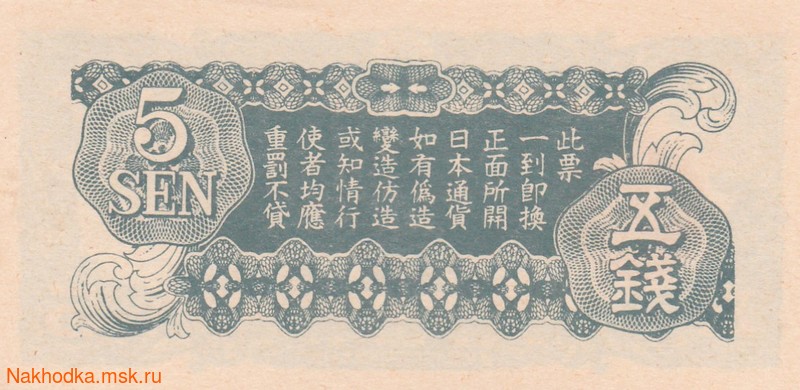 5
SEN
此票
一到卽換
正面所開
日本通貨
如有僞造
變造仿造
或知情行
使者均應
重罰不貸
五
錢
Nakhodka.msk.ru